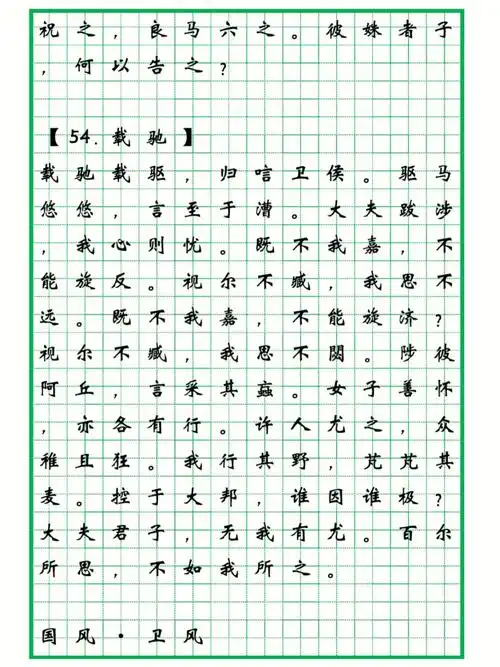 祝之，良马六之。彼姝者子
，何以告之？
【54.载驰】
载驰载驱，归唁卫侯。驱马
悠悠，言至于漕。大夫跋涉
，我心则忧。既不我嘉，不
能旋反。视尔不臧，我思不
远。既不我嘉，不能旋济？
视尔不臧，我思不閟。陟彼
阿丘，言采其蝱。女子善怀
，亦各有行。许人尤之，众
稚且狂。我行其野，芃芃其
麦。控于大邦，谁因谁极？
大夫君子，无我有尤。百尔
所思，不如我所之。
国风·卫风